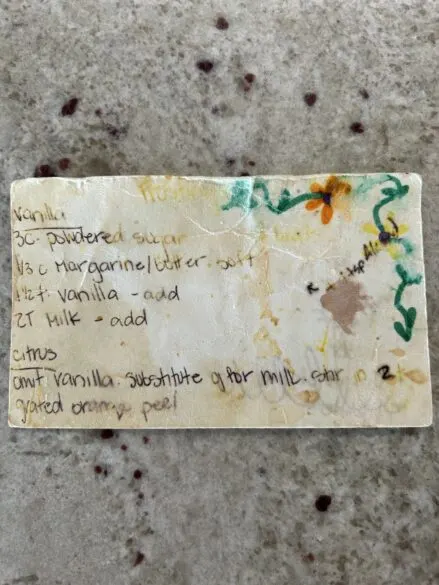 Vanilla
3c. powdered sugar
1/3 c Margarine/butter. soft
1 1/2 t Vanilla - add
2T Milk - add
citrus
omit vanilla. substitute for milk. stir in 2 t
grated orange peel